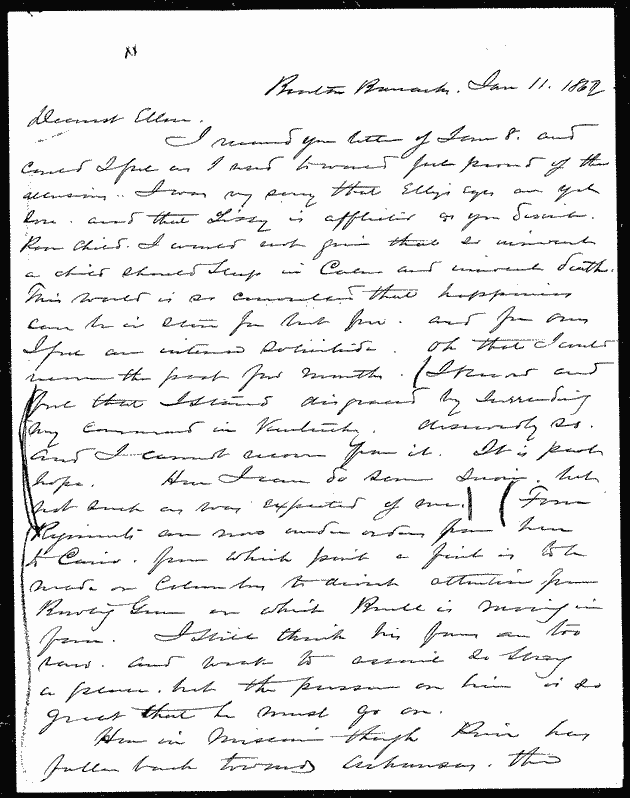 Benton Barracks. Jan 11. 1862
Dearest Ellen.
I received your letter of Jan 8. and
could I feel as I used to would feel proud of the
accession. I was very sorry that Elly's eyes are yet
sore. and that Lizzy is afflicted as you describe.
Poor child. I would not grieve that so innocent
a child should sleep in calm and innocent death.
This world is so constituted that happiness
can be in store for but few. and for ours
I feel an intense solicitude. Oh that I could
recover the past few months. (I know and
feel that I stand disgraced by surrending
my command in Kentucky. deservedly so.
and I cannot recover from it. It is past
hope. Here I can do some service but
not such as was expected of me.) (Four
Regiments are now under orders from here
to Cairo. from which point a feint is to be
made on Columbus to divert attention from
Bowling Green on which Buell is moving in
force. I still think his forces are too
raw. and weak to assail so strong
a place. but the pressure on him is so
great that he must go on.
Here in Missouri though Price has
fallen back towards Arkansas. the